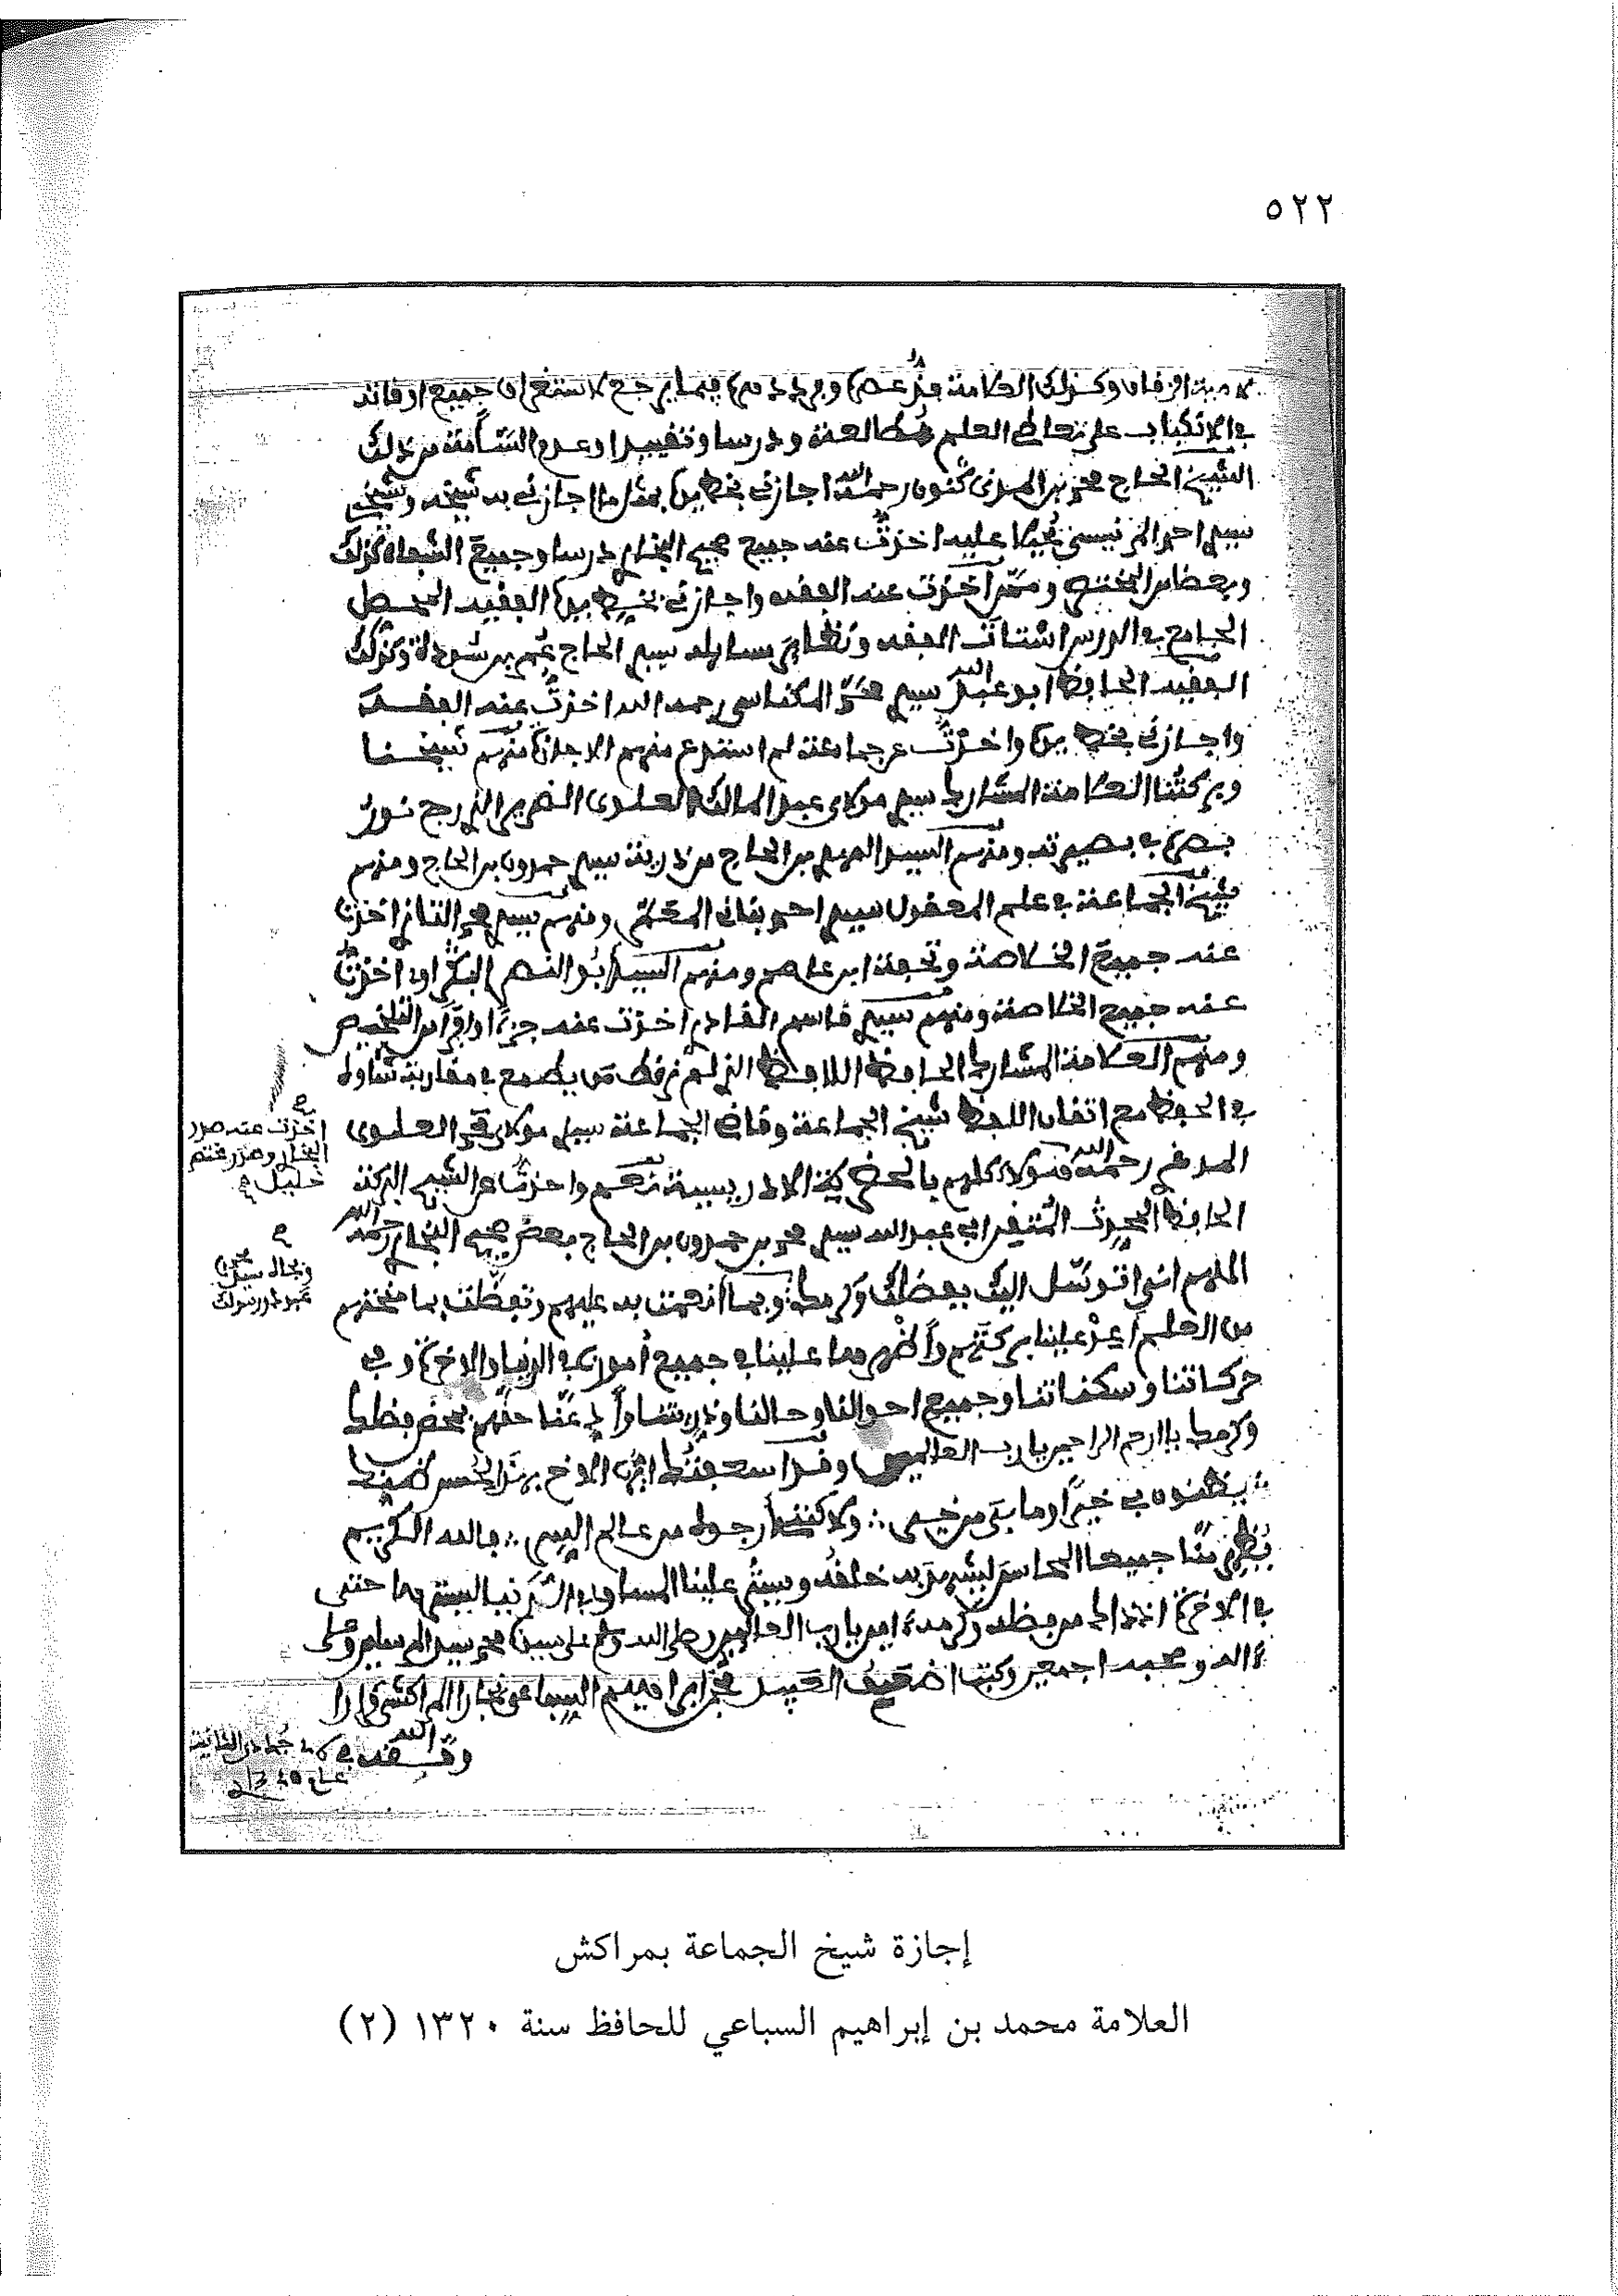 ٥٢٢
وكذلك العلامة فريد عصره ووحيد دهره فيما يرجع لاستغراق جميع اوقاته
في الانكباب على تعاطي العلم مطالعة ودرسا وتقييدا وعدم السآمة من ذلك
الشيخ الحاج محمد بن المدني كنون رحمه الله اجازني بخط يده بمثل ما اجازني به شيخه وشيخي
سيدي احمد المرنيسي عليه اخذت عنه جميع صحيح البخاري درسا وجميع الشفاء كذلك
وبعضا من المختصر وممن اخذت عنه الفقه واجازني بخط يده الفقيه المحصل
الجامع في الدرس اشتات الفقه ونظائر مسايله سيدي الحاج عمر بن سودة وكذلك
الفقيه الحافظ ابو عبد الله سيدي محمد المكناسي رحمه الله اخذت عنه الفقه
واجازني بخط يده واخذت عن جماعة لم استدع منهم الاجازة منهم شيخنا
وبركتنا العلامة المشارك سيدي مولاي عبد المالك العلوي الضرير الذي رجع نور
بصره في بصيرته ومنهم السيد المهدي بن الحاج من ذرية سيدي حمدون بن الحاج ومنهم
شيخ الجماعة في علم المعقول سيدي احمد بناني ومنهم سيدي محمد التازي اخذت
عنه جميع الخلاصة وتحفة ابن عاصم ومنهم السيد ابو النصر اخذت
عنه جميع الخلاصة ومنهم سيدي قاسم القادري اخذت عنه جزءا وافرا من التلخيص
ومنهم العلامة المشارك الحافظ اللافظ الذي لم نر قط من يطمع في مقاربة شأوه
في الحفظ مع اتقان اللفظ شيخ الجماعة وقاضي الجماعة سيدي مولاي محمد العلوي
المدغري رحمه الله هؤلاء كلهم بالحضرة الادريسية نعم واخذت عن الشيخ البركة
الحافظ المحدث المتقن ابي عبد الله سيدي محمد بن حمدون بن الحاج بعض صحيح البخاري رحمه الله
اللهم اني اتوسل اليك بفضلك وكرمك وبما انعمت به عليهم وتفضلت بما منحتهم
من العلم اعد علينا بركتهم واظهرها علينا في جميع امورنا في الدنيا والاخرة وفي
حركاتنا وسكناتنا وجميع احوالنا وحالنا عنا حقهم بمحض فضلك
وكرمك يا ارحم الراحمين يا رب العالمين وقد اسعفتك ايها الاخ لحسن ظنك
يظنون بي خيرا وما بي من خير ∴ ولاكنني ارجوه من عالم السر ∴ فالله الكريم
يظهر منا جميعا المحاسن خلقه ويستر علينا المساوي في الدنيا حتى
في الاخرة من فضله وكرمه امين يا رب العالمين وصلى الله وسلم على سيدنا محمد سيد المرسلين وعلى
ءاله وصحبه اجمعين وكتب اضعف العبيد محمد بن ابراهيم السباعي نجارا المراكشي دارا
وفقه الله في جمادى الثانية
عام
اخذت عنه صدر
البخاري وصدر مختصر
خليل
إجازة شيخ الجماعة بمراكش
العلامة محمد بن إبراهيم السباعي للحافظ سنة ١٣٢٠ (٢)